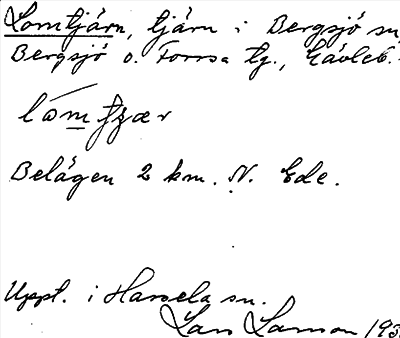 Lomtjärn, tjärn i Bergsjö sn,
Bergsjö o. Forsa tg., Gävleb.
Belägen 2 km. N. Ede.
Uppt. i Hassela sn.
Lars Larsson 193